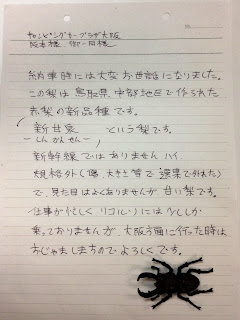 キャンピングキープラザ大阪
阪本様 御一同様
納車時には大変お世話になりました。
この梨は鳥取県中部地区で作られた
赤梨の新品種です。
新甘泉 という梨です。
ーしんかんせんー
新幹線ではありません ハイ、
規格外(傷、大きさ等で選果で外れた)
で、見た目はよくありませんが、甘い梨です。
仕事が忙しく リコルソには少ししか
乗っておりませんが、大阪方面に行った時は
おじゃましますので よろしくです。